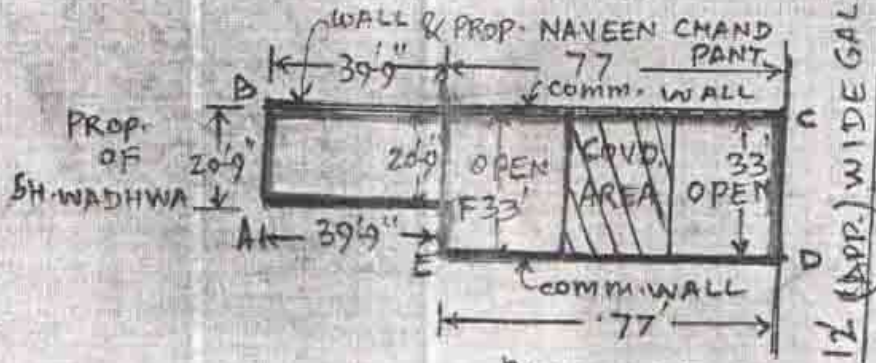 WALL & PROP. NAVEEN CHAND
PANT.
39'-9"
77
comm. WALL
B
C
PROP.
OF
SH. WADHWA
20'-9"
20'-9'
OPEN
COVD.
AREA
33'
OPEN
F 33'
A
39'-9"
E
D
comm. WALL
77'
12' (APP.) WIDE GAL